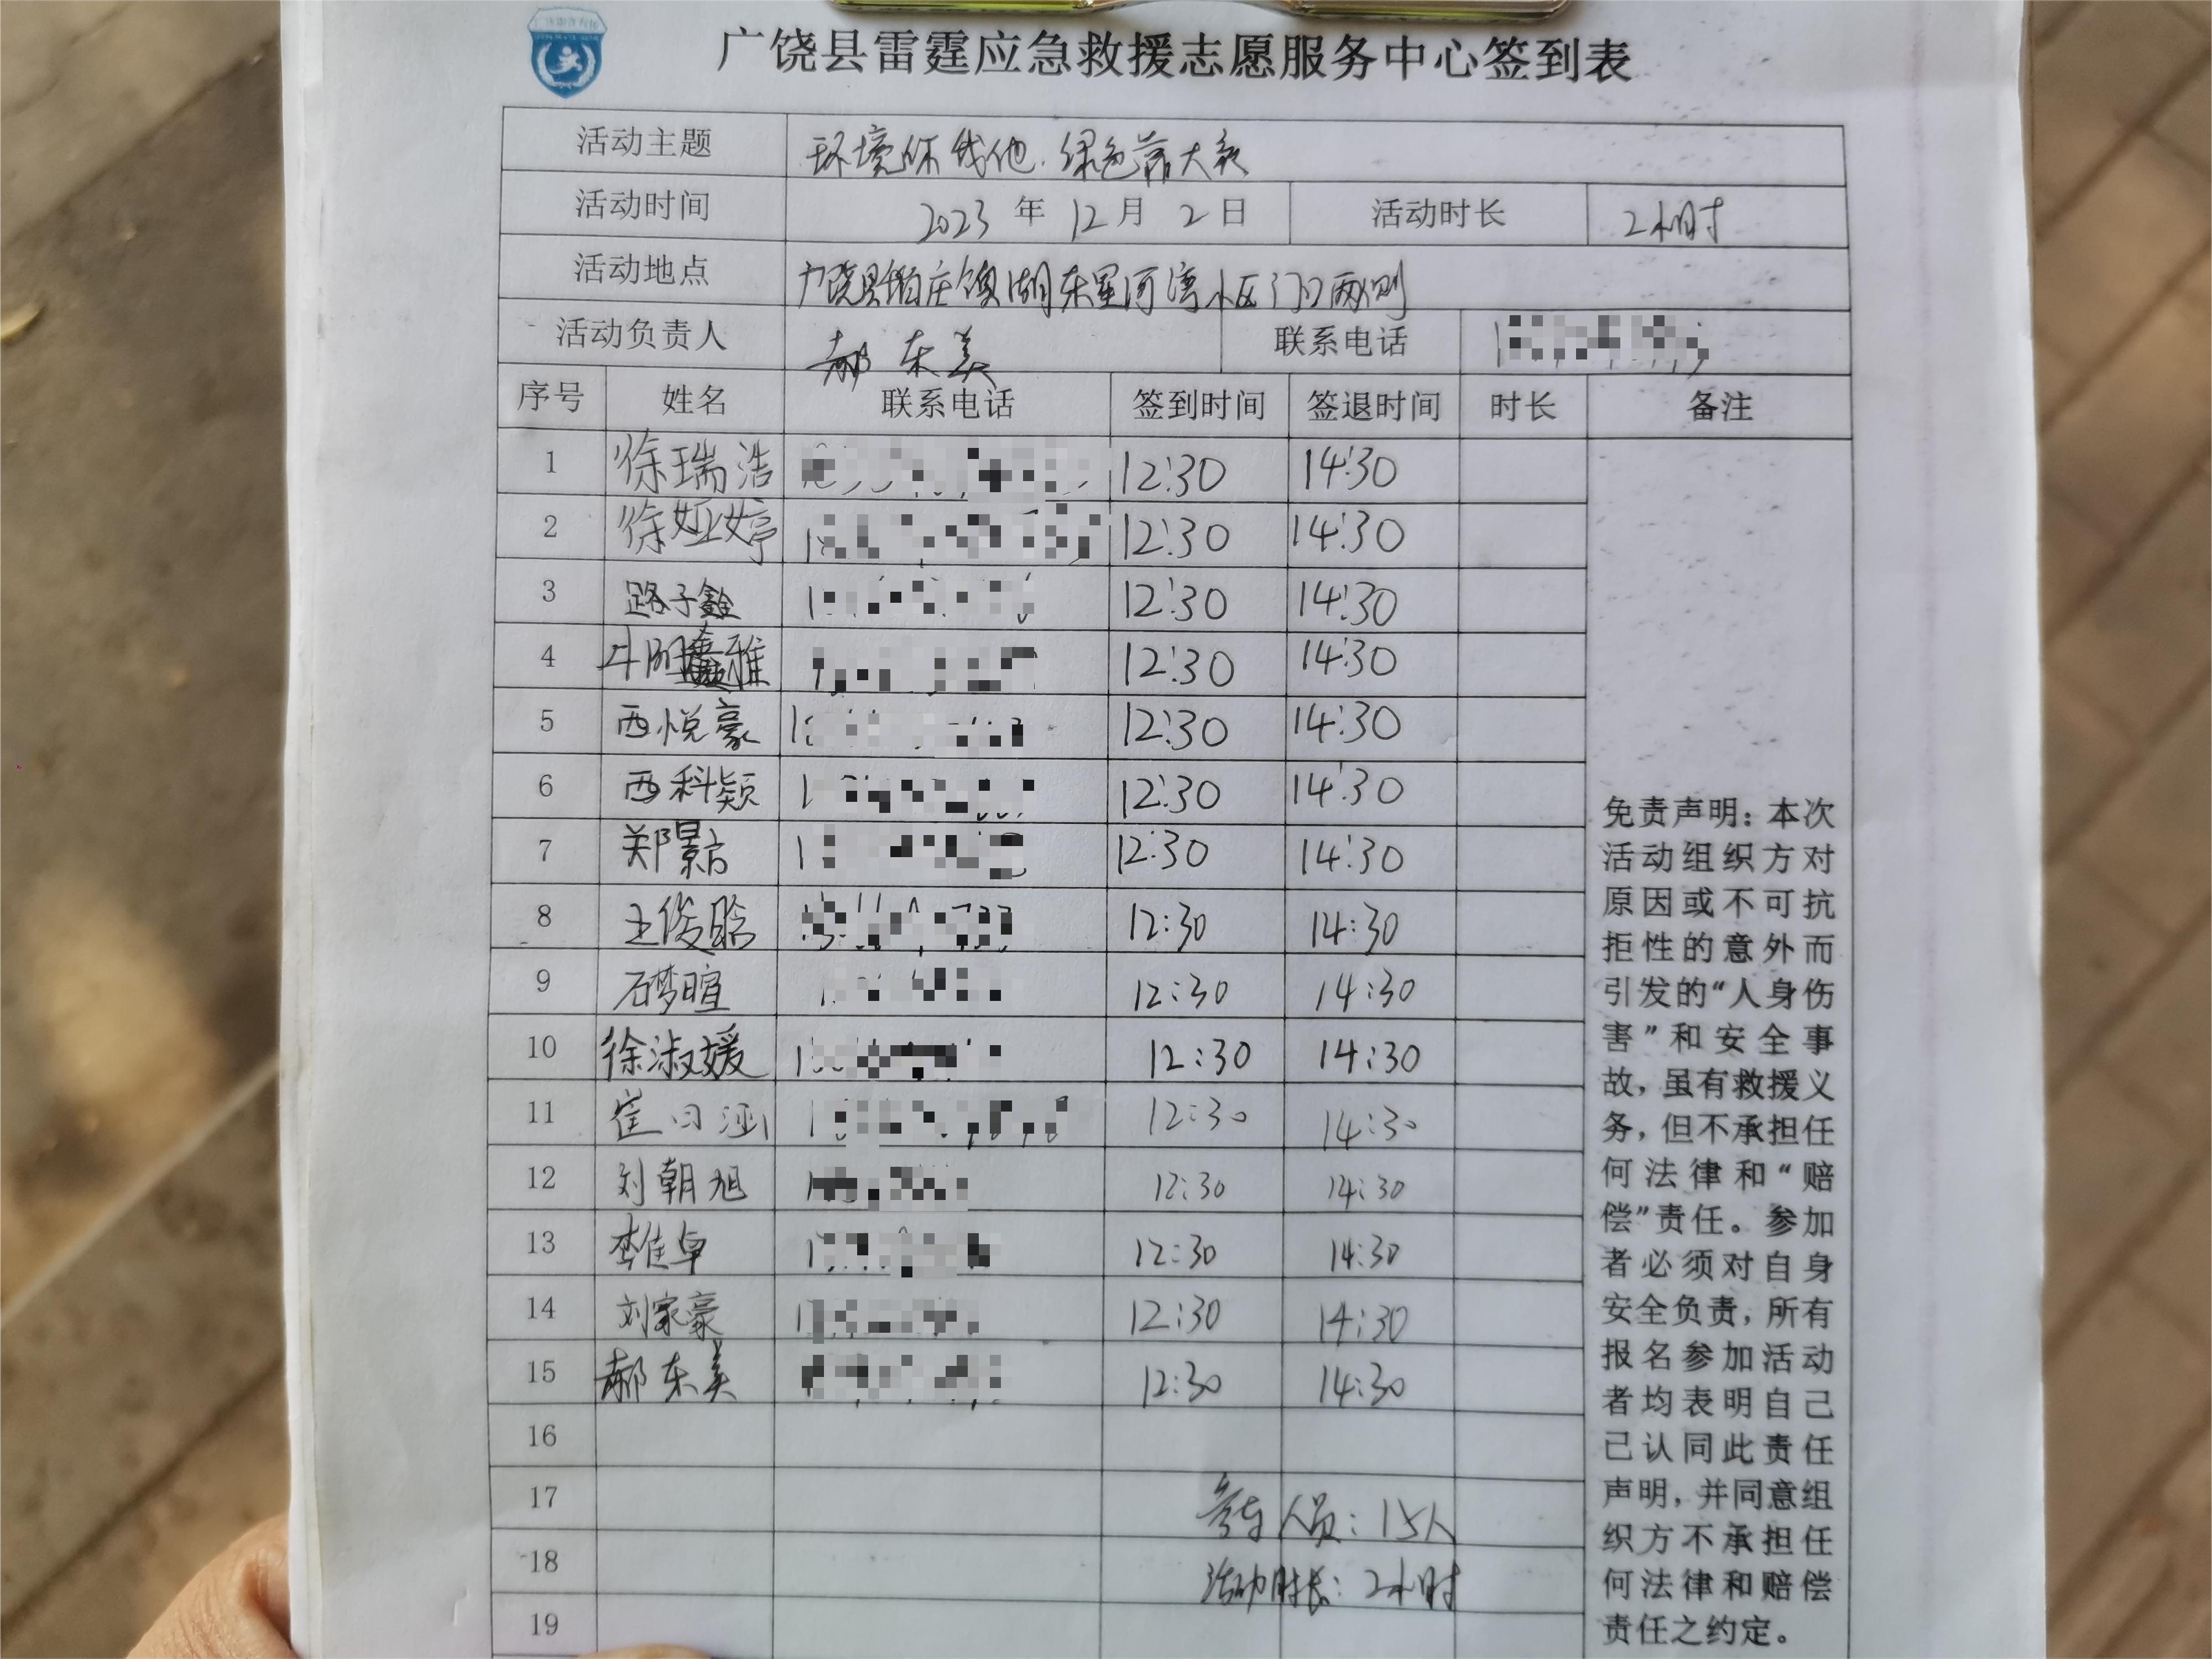 广饶县雷霆应急救援志愿服务中心签到表
活动主题 环境你我他.绿色靠大家
活动时间 2023 年 12 月 2 日 活动时长 2小时
活动地点 广饶县稻庄镇湖东星河湾小区门口两侧
活动负责人 郝东美 联系电话
序号 姓名 联系电话 签到时间 签退时间 时长 备注
1 徐瑞浩 12:30 14:30
2 徐娅婷 12:30 14:30
3 路子鑫 12:30 14:30
4 雅 12:30 14:30
5 西悦豪 12:30 14:30
6 西科颖 12:30 14:30
7 郑景 12:30 14:30
8 王俊晗 12:30 14:30
9 石梦暄 12:30 14:30
10 徐淑媛 12:30 14:30
11 崔 涵 12:30 14:30
12 刘朝旭 12:30 14:30
13 李佳卓 12:30 14:30
14 刘家豪 12:30 14:30
15 郝东美 12:30 14:30
16
17 参与人员:15人
18 活动时长:2小时
19
免责声明：本次
活动组织方对
原因或不可抗
拒性的意外而
引发的“人身伤
害”和安全事
故，虽有救援义
务，但不承担任
何法律和“赔
偿”责任。参加
者必须对自身
安全负责，所有
报名参加活动
者均表明自己
已认同此责任
声明，并同意组
织方不承担任
何法律和赔偿
责任之约定。